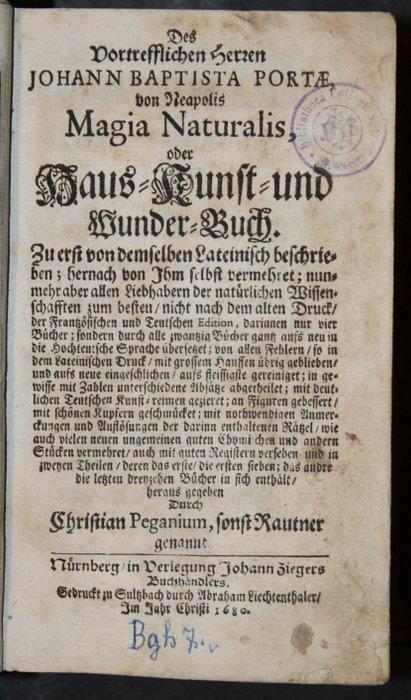 Des
Vortrefflichen Herren
JOHANN BAPTISTA PORTÆ,
von Neapolis
Magia Naturalis,
oder
Haus-Kunst-und
Wunder-Buch.
Zu erst von demselben Lateinisch beschrie-
ben; hernach von Ihm selbst vermehret; nun-
mehr aber allen Liebhabern der natürlichen Wissen-
schafften zum besten/ nicht nach dem alten Druck/
der Frantzösischen und Teutschen Edition, darinnen nur vier
Bücher; sondern durch alle zwantzig Bücher gantz aufs neu in
die Hochteutsche Sprache übersetzet; von allen Fehlern/ so in
dem Lateinischen Druck/ mit grossem Hauffen übrig geblieben/
und aufs neue eingeschlichen/ aufs fleissigste gereiniget; in ge-
wisse mit Zahlen unterschiedene Absätze abgetheilet; mit deut-
lichen Teutschen Kunst-reimen gezieret; an Figuren gebessert/
mit schönen Kupfern geschmücket; mit nothwendigen Anmer-
ckungen und Auflösungen der darinn enthaltenen Rätzel/ wie
auch vielen neuen ungemeinen guten Chymischen und andern
Stücken vermehret/ auch mit guten Registern versehen und in
zweyen Theilen/ deren das erste/ die ersten sieben; das andre
die letzten dreyzehen Bücher in sich enthält/
heraus gegeben
Durch
Christian Peganium, sonst Rautner
genannt.
Nürnberg/ in Verlegung Johann Ziegers
Buchhändlers.
Gedruckt zu Sultzbach durch Abraham Liechtenthaler/
Im Jahr Christi 1680.
Bgh 7.
Bibliotheca